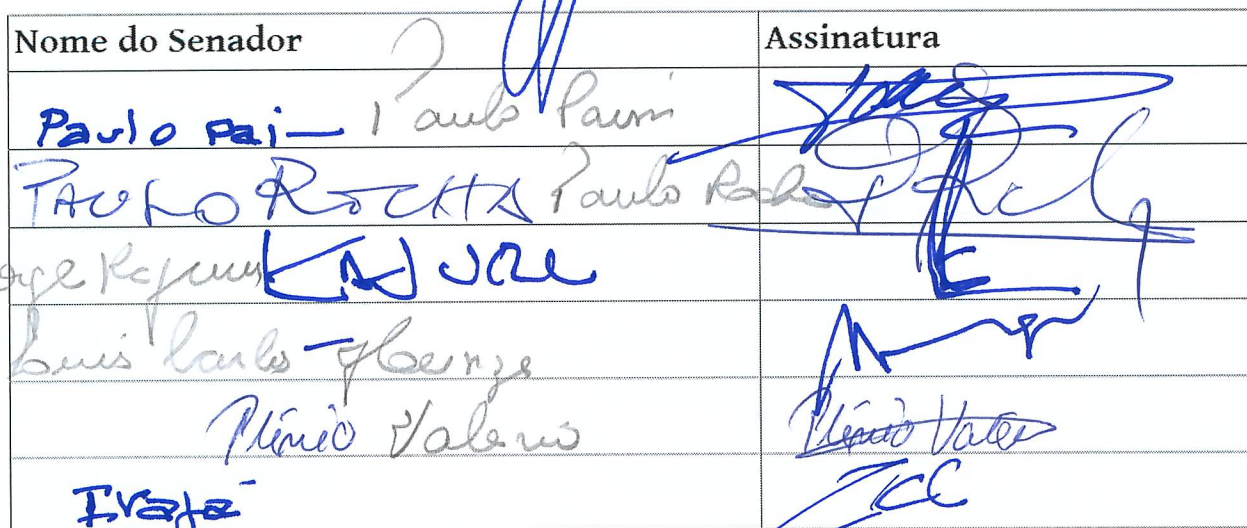 Nome do Senador Assinatura
Paulo Pai Paulo Paim
PAULO ROCHA Paulo Rocha
KAJURU
Luis Carlos Heinze
Plínio Valério Plínio Valério
Irajá